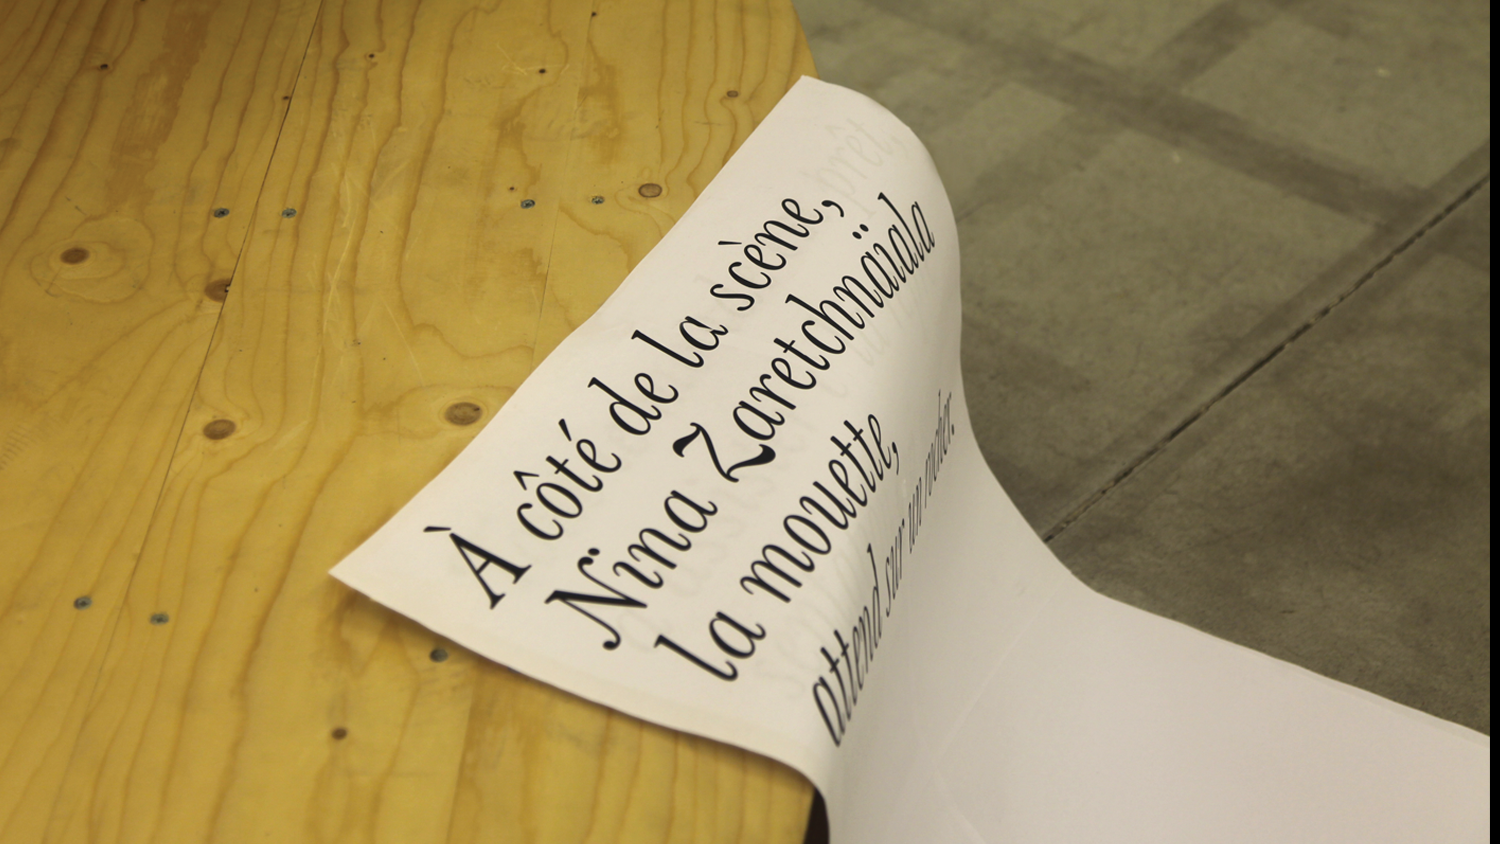 À côté de la scène,
Nina Zaretchnaïala
la mouette,
attend sur un rocher.